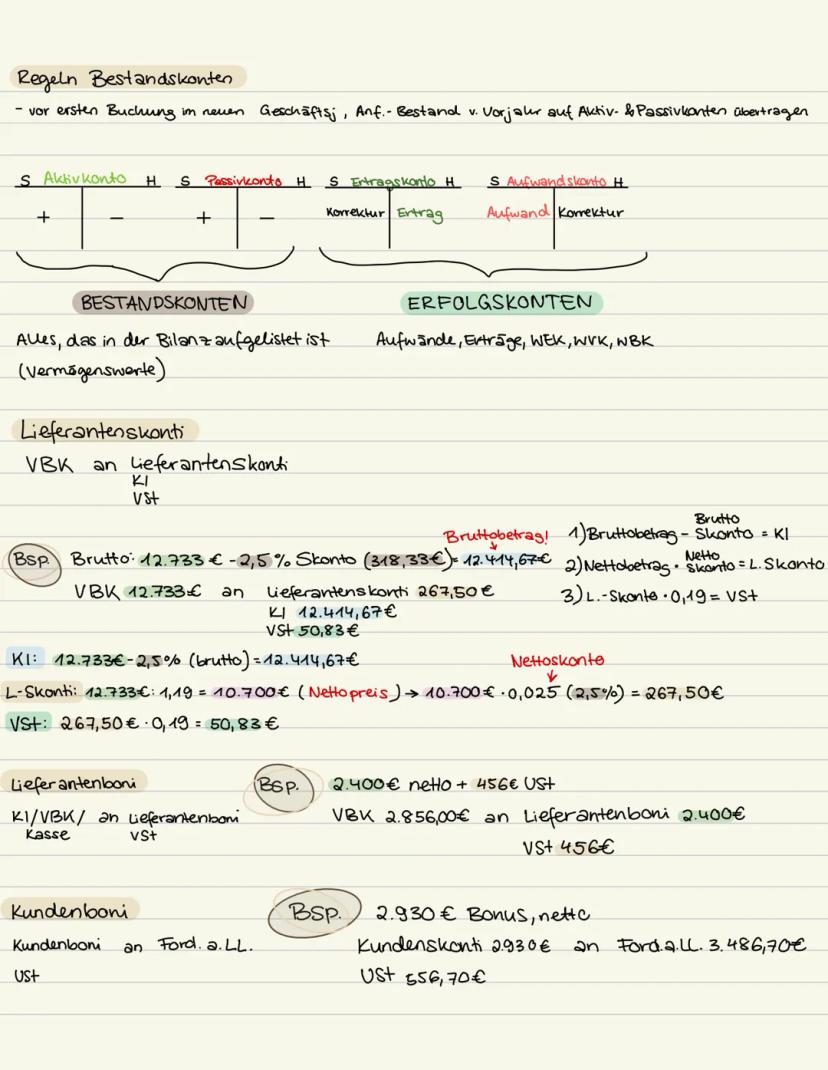 Regeln Bestandskonten
- vor ersten Buchung im neuen Geschäftsj, Anf.-Bestand v. Vorjahr auf Aktiv- & Passivkonten übertragen
S Aktivkonto H S Passivkonto H S Ertragskonto H S Aufwandskonto H
+ - + - Korrektur Ertrag Aufwand Korrektur
BESTANDSKONTEN ERFOLGSKONTEN
Alles, das in der Bilanz aufgelistet ist Aufwände, Erträge, WEK, WVK, WBK
(Vermögenswerte)
Lieferantenskonti
VBK an Lieferantenskonti
KI
VSt
Bruttobetrag! 1) Bruttobetrag - Brutto Skonto = KI
Bsp. Brutto: 12.733 € -2,5% Skonto (318,33€) = 12.414,67€ 2) Nettobetrag · Netto Skonto = L. Skonto
VBK 12.733€ an Lieferantenskonti 267,50 € 3) L.-Skonto · 0,19 = VSt
KI 12.414,67€
VSt 50,83 €
KI: 12.733€ - 2,5% (brutto) = 12.414,67€ Nettoskonto
L-Skonti: 12.733€ : 1,19 = 10.700€ (Nettopreis) → 10.700€ · 0,025 (2,5%) = 267,50€
VSt: 267,50 € · 0,19 = 50,83 €
Lieferantenboni Bsp. 2.400€ netto + 456€ USt
KI/VBK/ an Lieferantenboni VBK 2.856,00€ an Lieferantenboni 2.400€
Kasse VSt
VSt 456€
Kundenboni Bsp. 2.930 € Bonus, netto
Kundenboni an Ford. a. LL. Kundenskonti 2930€ an Ford.a.LL. 3.486,70€
USt USt 556,70€